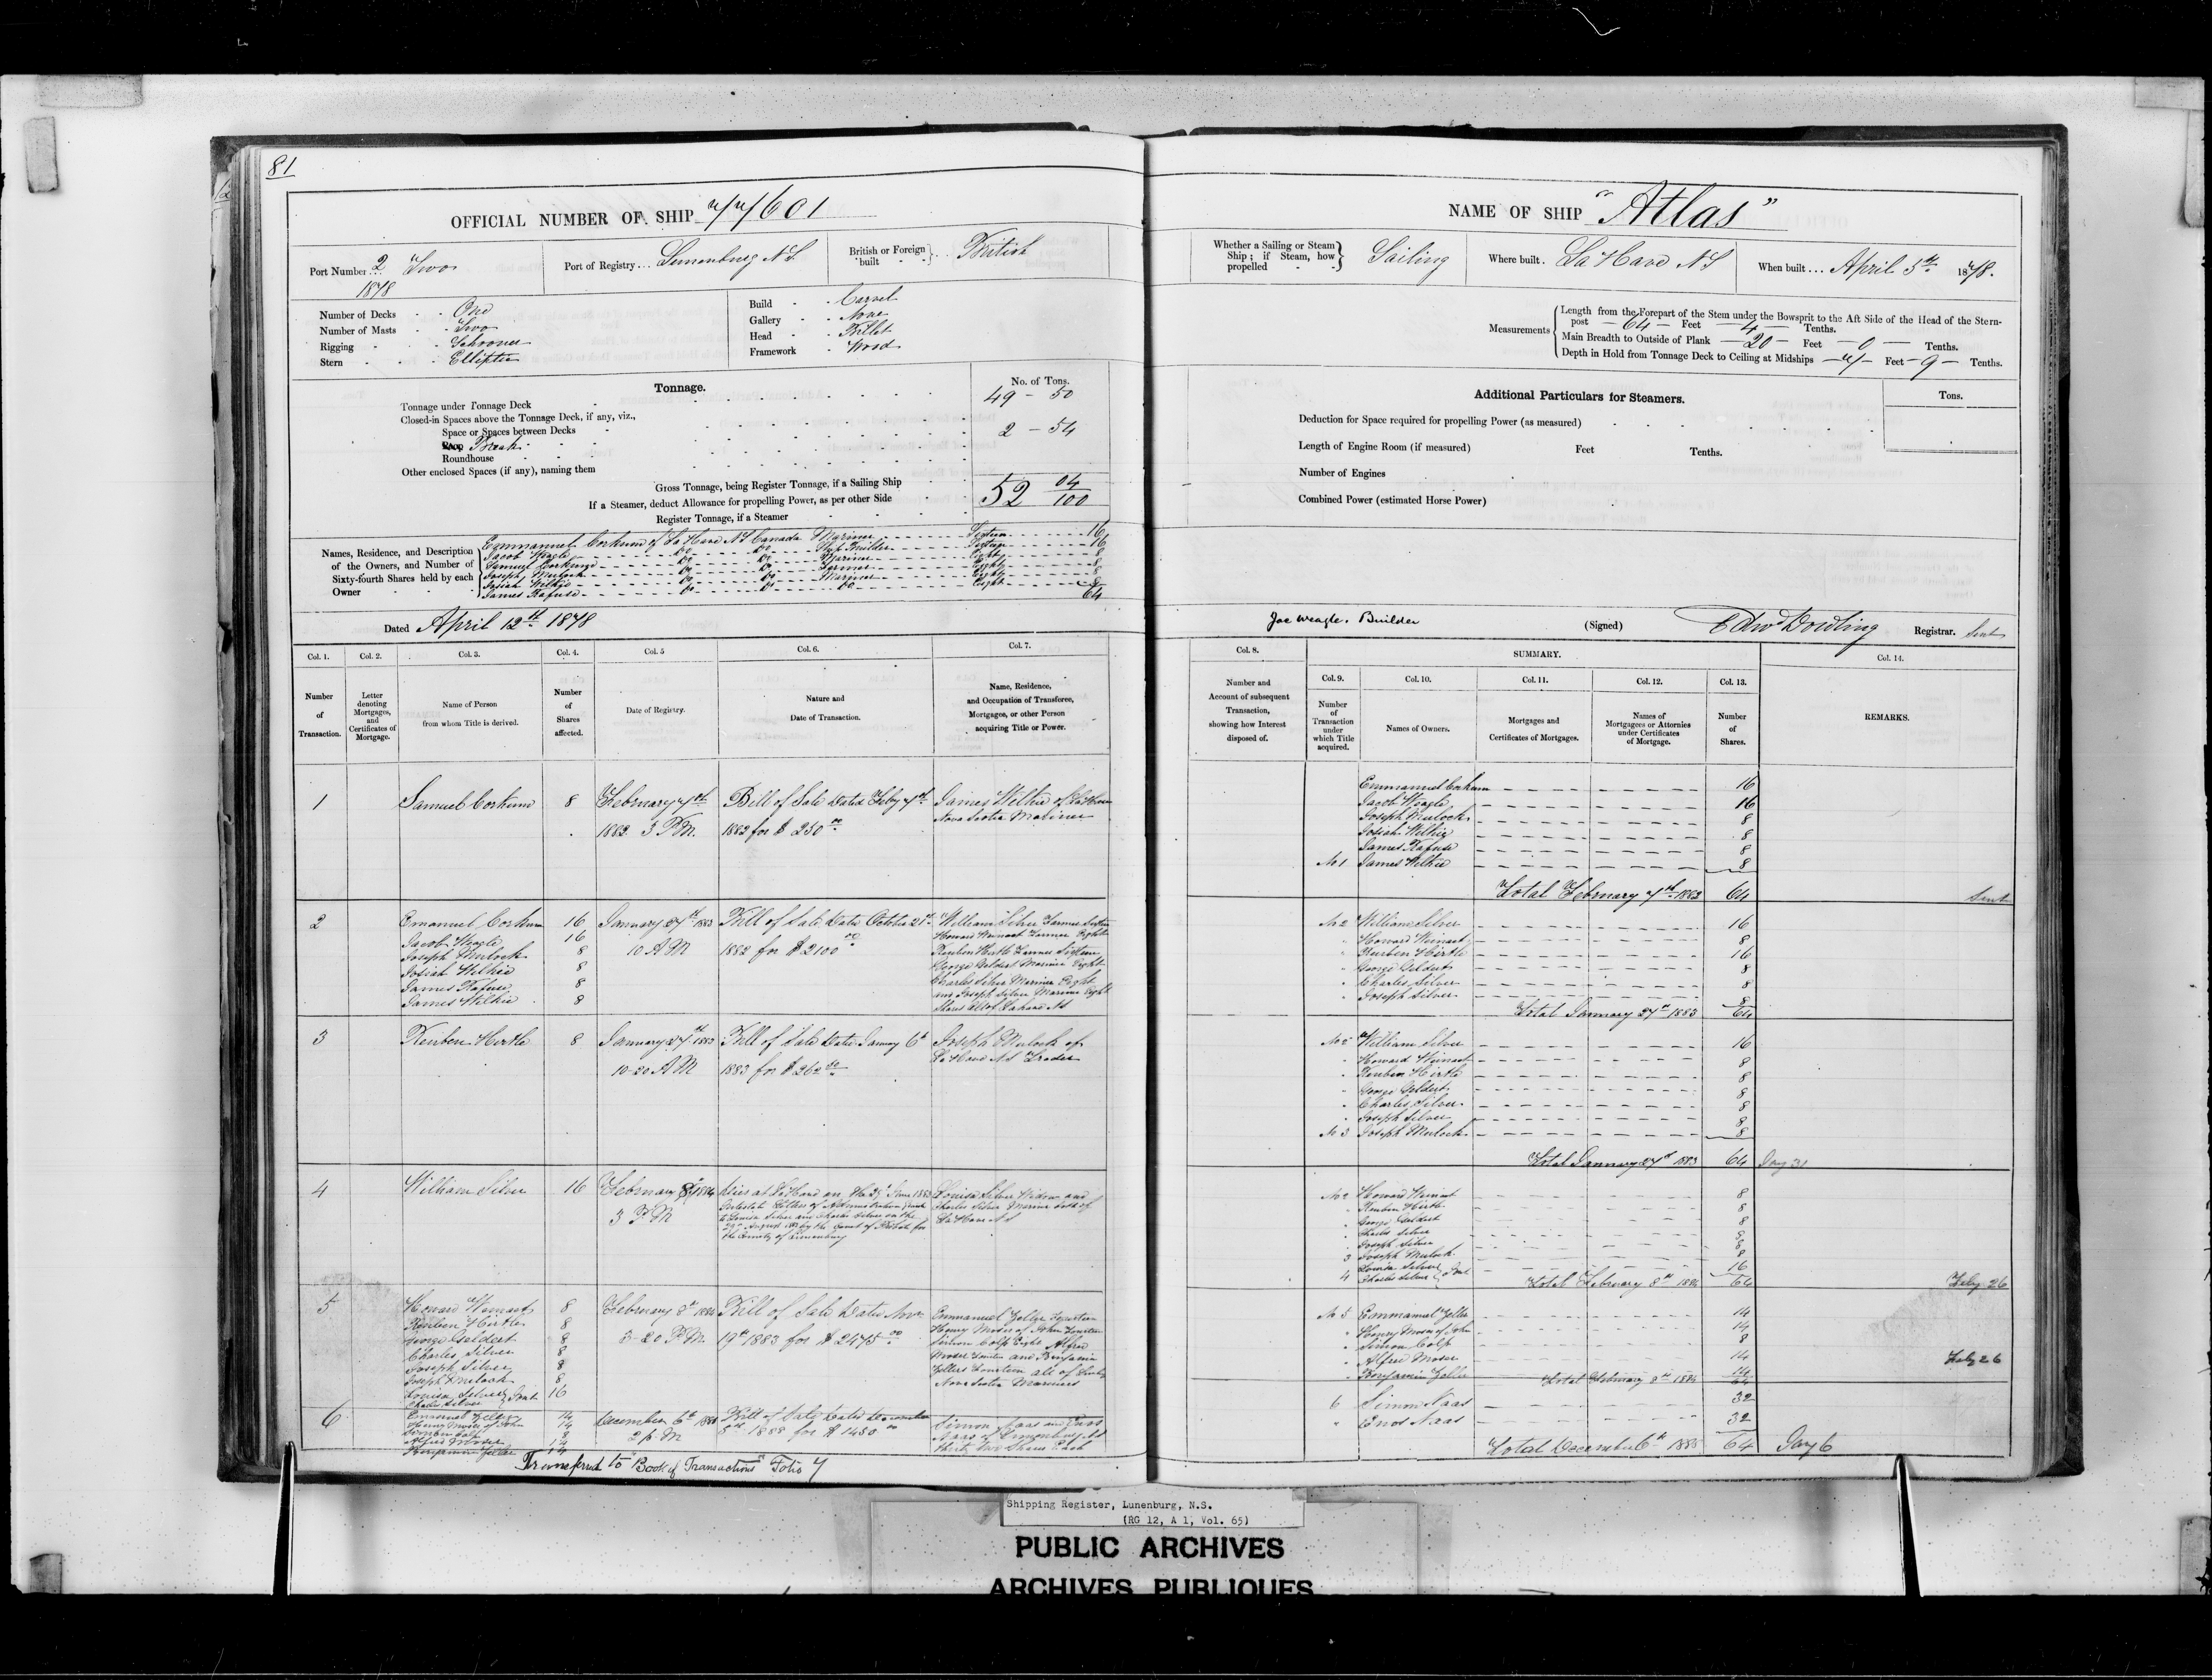 81
OFFICIAL NUMBER OF SHIP 77601
Port Number 2 Two 1878
Port of Registry... Lunenburg N S
British or Foreign built British
Number of Decks One
Number of Masts Two
Rigging Schooner
Stern Elliptic
Build Carvel
Gallery None
Head Billet
Framework Wood
Tonnage.
No. of Tons.
Tonnage under Tonnage Deck 49 - 50
Closed-in Spaces above the Tonnage Deck, if any, viz.,
Space or Spaces between Decks
Poop Break 2 - 54
Roundhouse
Other enclosed Spaces (if any), naming them
Gross Tonnage, being Register Tonnage, if a Sailing Ship 52 04/100
If a Steamer, deduct Allowance for propelling Power, as per other Side
Register Tonnage, if a Steamer
Names, Residence, and Description of the Owners, and Number of Sixty-fourth Shares held by each Owner
Emmanuel Corkum of La Have N S Canada Mariner Sixteen 16
Jacob Weagle Do Do Ship Builder Sixteen 16
Samuel Corkum Do Do Mariner Eight 8
Joseph Mulock Do Do Farmer Eight 8
Josiah Wilkie Do Do Mariner Eight 8
James Rafuse Do Do Do Eight 8
64
Dated April 12th 1878
Col. 1. Col. 2. Col. 3. Col. 4. Col. 5 Col. 6. Col. 7.
Number of Transaction.
Letter denoting Mortgages, and Certificates of Mortgage.
Name of Person from whom Title is derived.
Number of Shares affected.
Date of Registry.
Nature and Date of Transaction.
Name, Residence, and Occupation of Transferee, Mortgagee, or other Person acquiring Title or Power.
1 Samuel Corkum 8 February 7th Bill of Sale Dated Feby 7th James Wilkie of LaHave
1882 3 P.M. 1882 for $ 250 00 Nova Scotia Mariner
2 Emanuel Corkum 16 January 27th 1883 Bill of Sale Dated October 21st William Silver Farmer Sixteen
Jacob Weagle 16 10 A M 1882 for $ 2100 00 Howard Weinact Farmer Eight
Joseph Mulock 8 Reuben Hirtle Farmer Sixteen
Josiah Wilkie 8 George Geldert Mariner Eight
James Rafuse 8 Charles Silver Mariner Eight
James Wilkie 8 and Joseph Silver Mariner Eight
Shares all of Lahave N S
3 Reuben Hirtle 8 January 27th 1883 Bill of Sale Dated January 6th Joseph Mulock of
10-20 A M 1883 for $ 262 50 La Have N S Trader
4 William Silver 16 February 8th 1884 Died at LaHave on the 25th June 1883 Louisa Silver Widow and
3 P M Intestate Letters of Administration granted Charles Silver Mariner both of
to Louisa Silver and Charles Silver on the La Have N S
August 1883 by the Court of Probate for
the County of Lunenburg
5 Howard Weinact 8 February 8th 1884 Bill of Sale Dated Novr Emmanuel Zeller Fourteen
Reuben Hirtle 8 3-20 P M 19th 1883 for $ 2475 00 Henry Moser of John Fourteen
George Geldert 8 Simon Colp Eight Alfred
Charles Silver 8 Moser Fourteen and Benjamin
Joseph Silver 8 Zellers Fourteen all of
Joseph Mulock 8 Nova Scotia Mariners
Louisa Silver Charles Silver Joint 16
6 Emanuel Zeller 14 December 6th 1888 Bill of Sale Dated December Simon Naas and Enos
Henry Moser of John 14 2 p M 1888 for $ 1450 00 Naas of Lunenburg N S
Simon Colp 8 Thirty two Shares Each
Alfred Moser 14
Benjamin Zeller 14
Transferred to "Book of Transactions" Folio 7
NAME OF SHIP "Atlas"
Whether a Sailing or Steam Ship; if Steam, how propelled Sailing
Where built. La Have N S
When built... April 5th 1878.
Measurements
Length from the Forepart of the Stem under the Bowsprit to the Aft Side of the Head of the Stern-
post 64 Feet 4 Tenths.
Main Breadth to Outside of Plank 20 Feet 0 Tenths.
Depth in Hold from Tonnage Deck to Ceiling at Midships 7 Feet 9 Tenths.
Additional Particulars for Steamers.
Tons.
Deduction for Space required for propelling Power (as measured)
Length of Engine Room (if measured) Feet Tenths.
Number of Engines
Combined Power (estimated Horse Power)
Jac Weagle. Builder
(Signed) Edwd Dowling Registrar. Sent
Col. 8. SUMMARY. Col. 14.
Col. 9. Col. 10. Col. 11. Col. 12. Col. 13.
Number and Account of subsequent Transaction, showing how Interest disposed of.
Number of Transaction under which Title acquired.
Names of Owners.
Mortgages and Certificates of Mortgages.
Names of Mortgagees or Attornies under Certificates of Mortgage.
Number of Shares.
REMARKS.
Emmanuel Corkum 16
Jacob Weagle 16
Joseph Mulock 8
Josiah Wilkie 8
James Rafuse 8
No 1 James Wilkie 8
Total February 7th 1882 64 Sent
No 2 William Silver 16
" Howard Weinact 8
" Reuben Hirtle 16
" George Geldert 8
" Charles Silver 8
" Joseph Silver 8
Total January 27th 1883 64
No 2 William Silver 16
" Howard Weinact 8
" Reuben Hirtle 8
" George Geldert 8
" Charles Silver 8
" Joseph Silver 8
No 3 Joseph Mulock 8
Total January 27th 1883 64 Jany 31
No 2 Howard Weinact 8
" Reuben Hirtle 8
" George Geldert 8
" Charles Silver 8
" Joseph Silver 8
3 Joseph Mulock 8
4 Louisa Silver Charles Silver Joint 16
Total February 8th 1884 64 Feby 26
No 5 Emmanuel Zeller 14
" Henry Moser of John 14
" Simon Colp 8
" Alfred Moser 14 Feby 26
" Benjamin Zeller 14
Total February 8th 1884 64
6 Simon Naas 32
" Enos Naas 32
Total December 6th 1888 64 Jany 6
Shipping Register, Lunenburg, N.S.
(RG 12, A 1, Vol. 65)
PUBLIC ARCHIVES
ARCHIVES PUBLIQUES